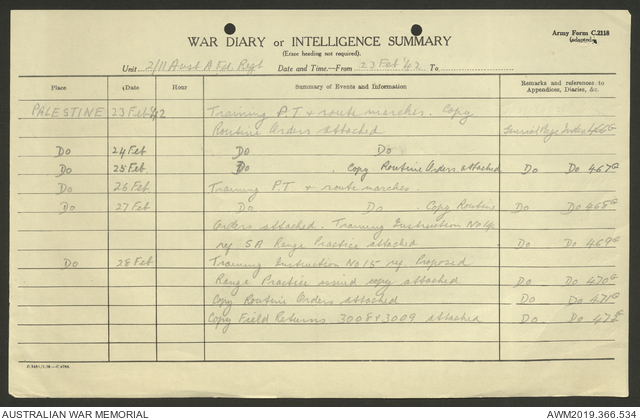 Army Form C.2118
(adapted)
WAR DIARY or INTELLIGENCE SUMMARY
(Erase heading not required).
Unit 2/11 Aust A Fd Regt Date and Time—From 23 Feb '42 To
Place Date Hour Summary of Events and Information Remarks and references to Appendices, Diaries, &c.
PALESTINE 23 Feb '42 Training P.T + route marches. Copy
Routine Orders attached Journal Page Index 466
Do 24 Feb Do Do
Do 25 Feb Do . Copy Routine Orders attached Do Do 467
Do 26 Feb Training P.T + route marches.
Do 27 Feb Do Do . Copy Routine Do Do 468
Orders attached. Training Instruction No 14
re SA Range Practice attached Do Do 469
Do 28 Feb Training Instruction No 15 re Proposed
Range Practice issued copy attached Do Do 470
Copy Routine Orders attached Do Do 471
Copy Field Returns 3008 & 3009 attached Do Do 472
AUSTRALIAN WAR MEMORIAL AWM2019.366.534